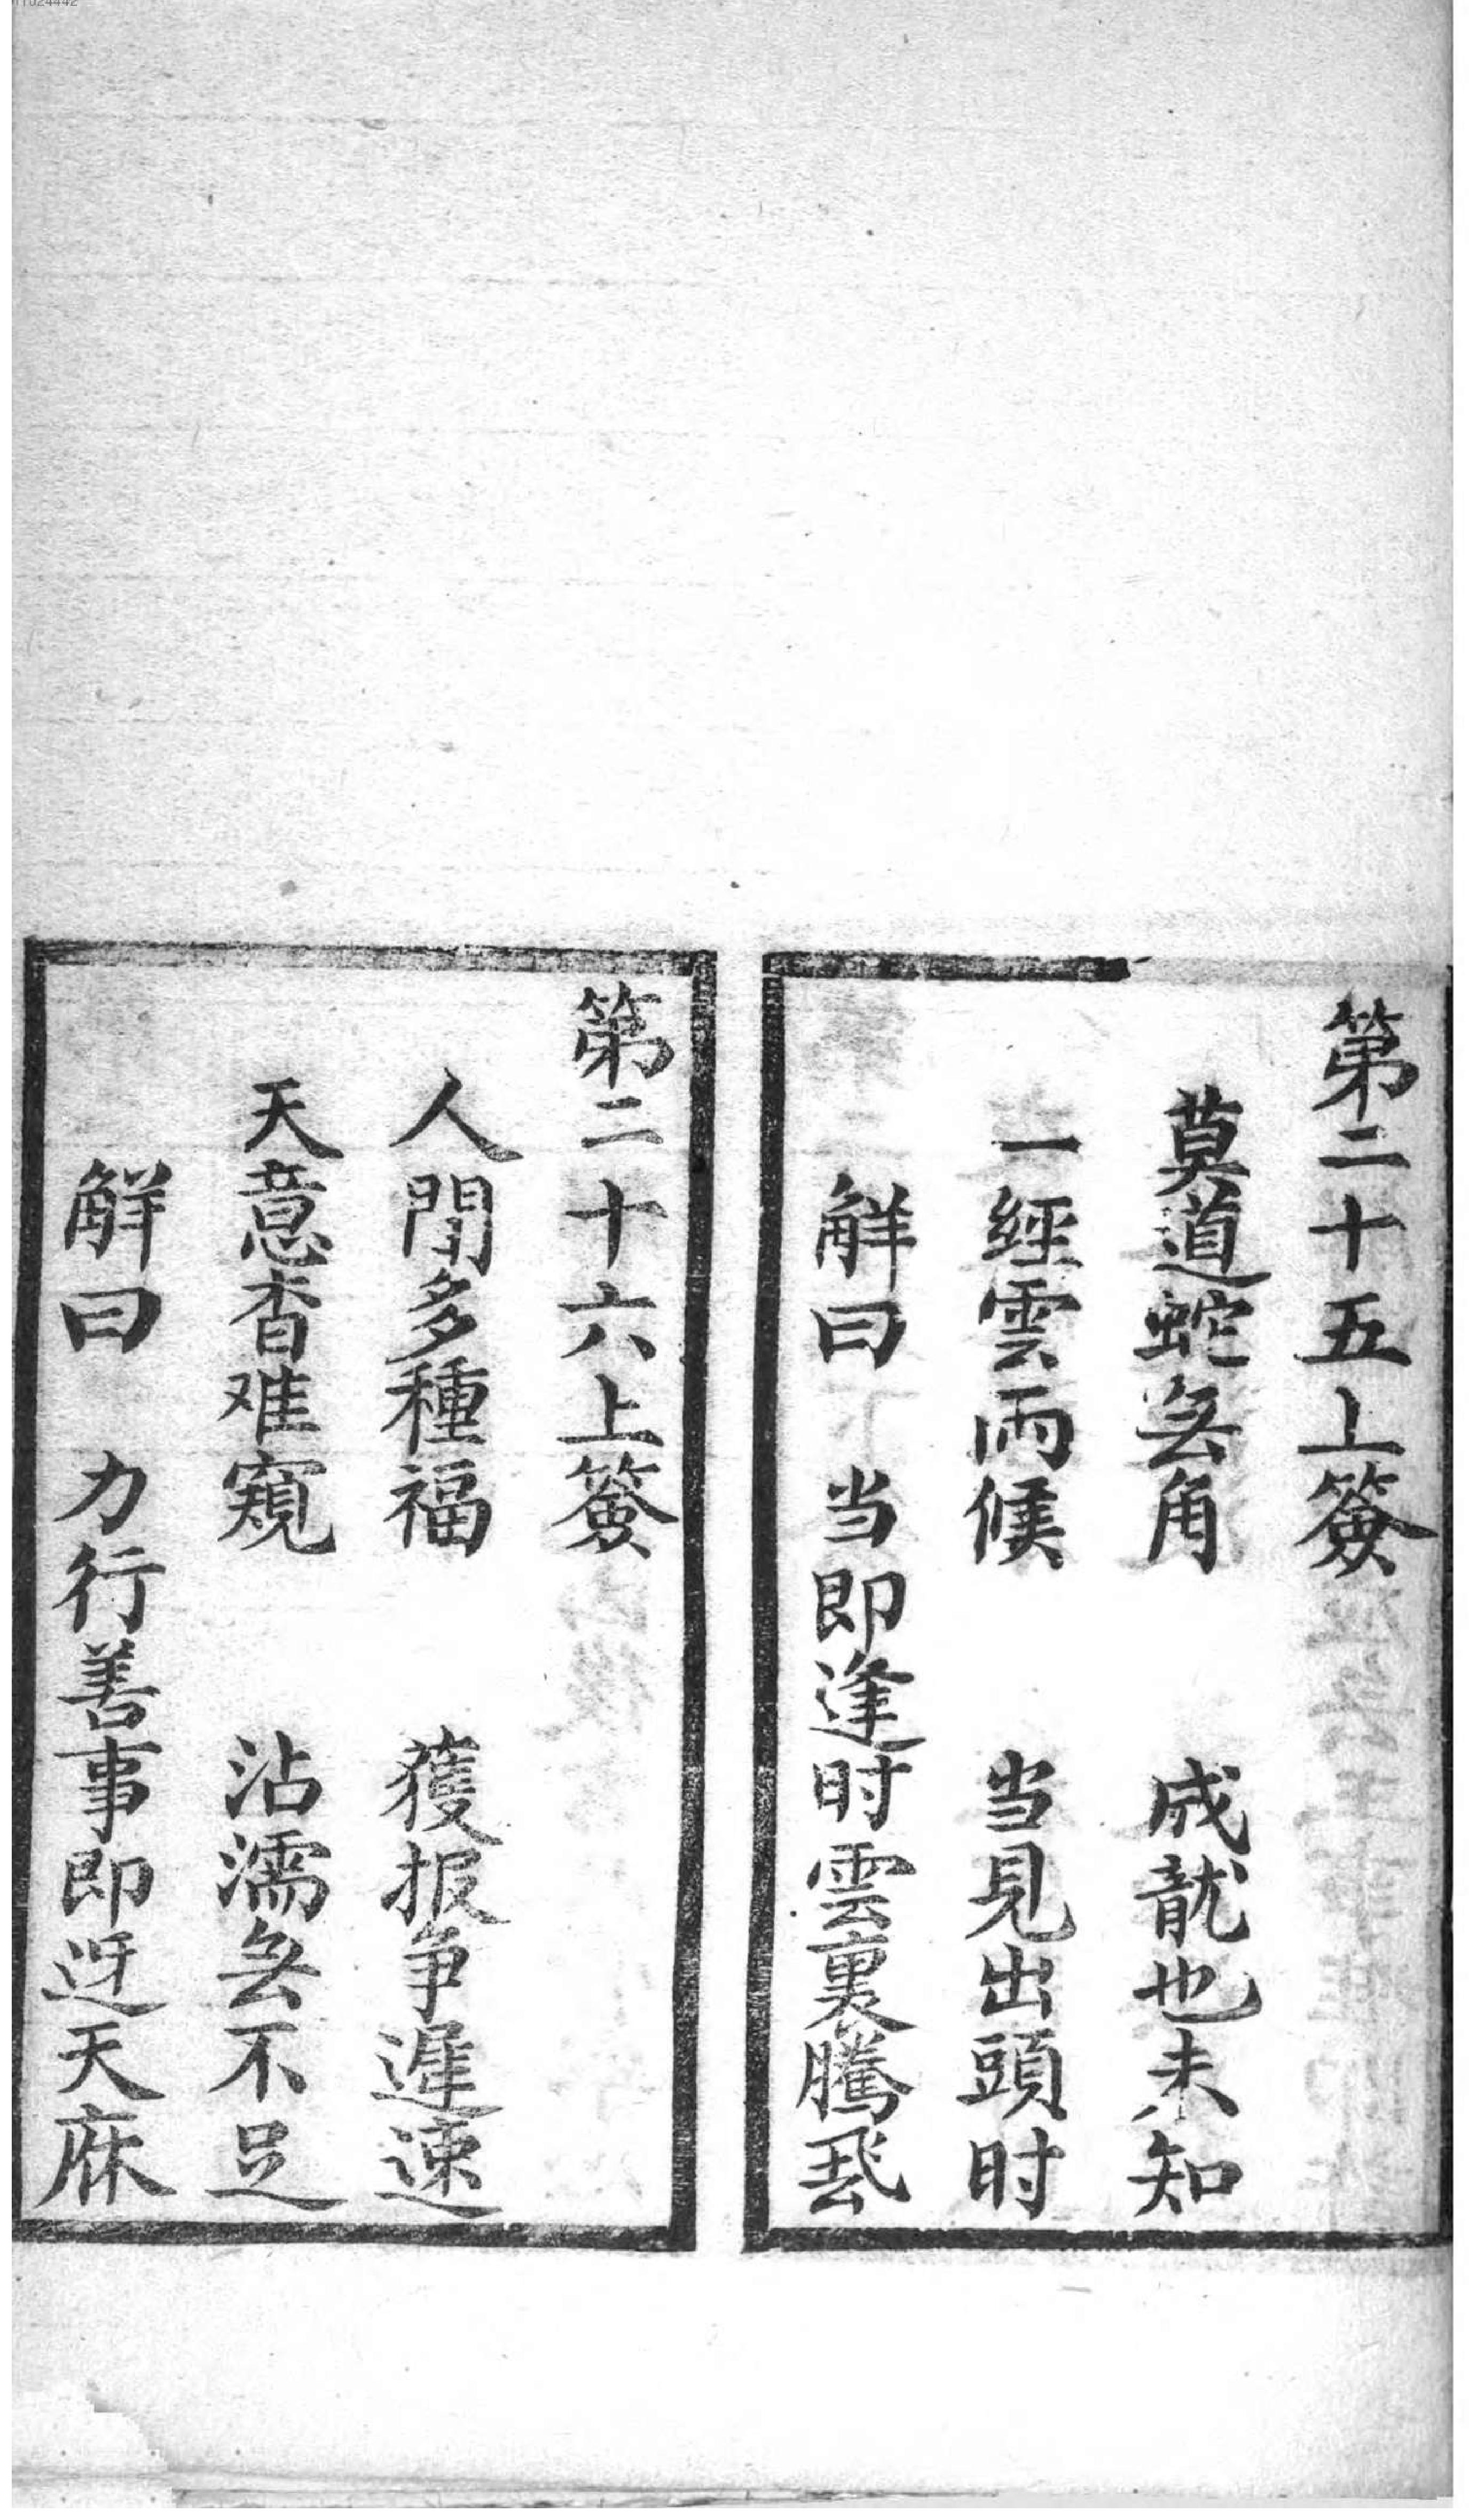 第二十五上簽
莫道蛇無角　成龍也未知
一經雲雨候　当見出頭时
解曰　当即逢时雲裏騰飛
第二十六上簽
人間多種福　獲报争遲速
天意杳难窺　沾濡無不足
解曰　力行善事即迓天庥